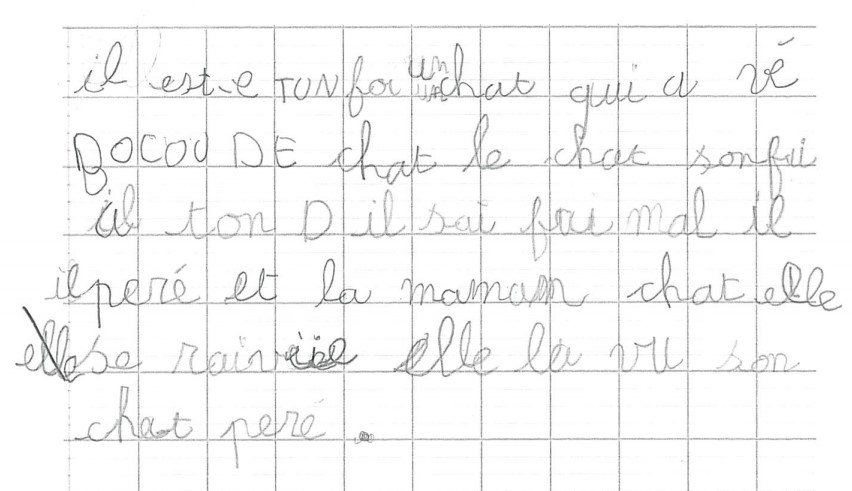 il est-e TON foi un chat qui a vé
BOCOU DE chat le chat sonfui
il ton D il sai fui mal il
ilperé et la mamam chat elle
se raiv elle la vu son
chat peré.